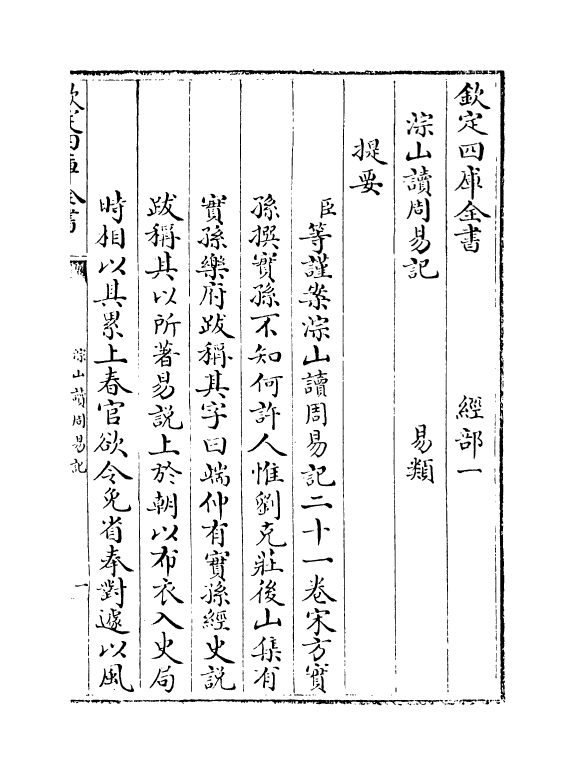 欽定四庫全書 經部一
淙山讀周易記 易類
提要
臣等謹案淙山讀周易記二十一卷宋方實
孫撰實孫不知何許人惟劉克莊後山集有
實孫樂府跋稱其字曰端仲有實孫經史說
跋稱其以所著易說上於朝以布衣入史局
時相以其累上春官欲令免省奉對遽以風
欽定四庫全書
淙山讀周易記
一